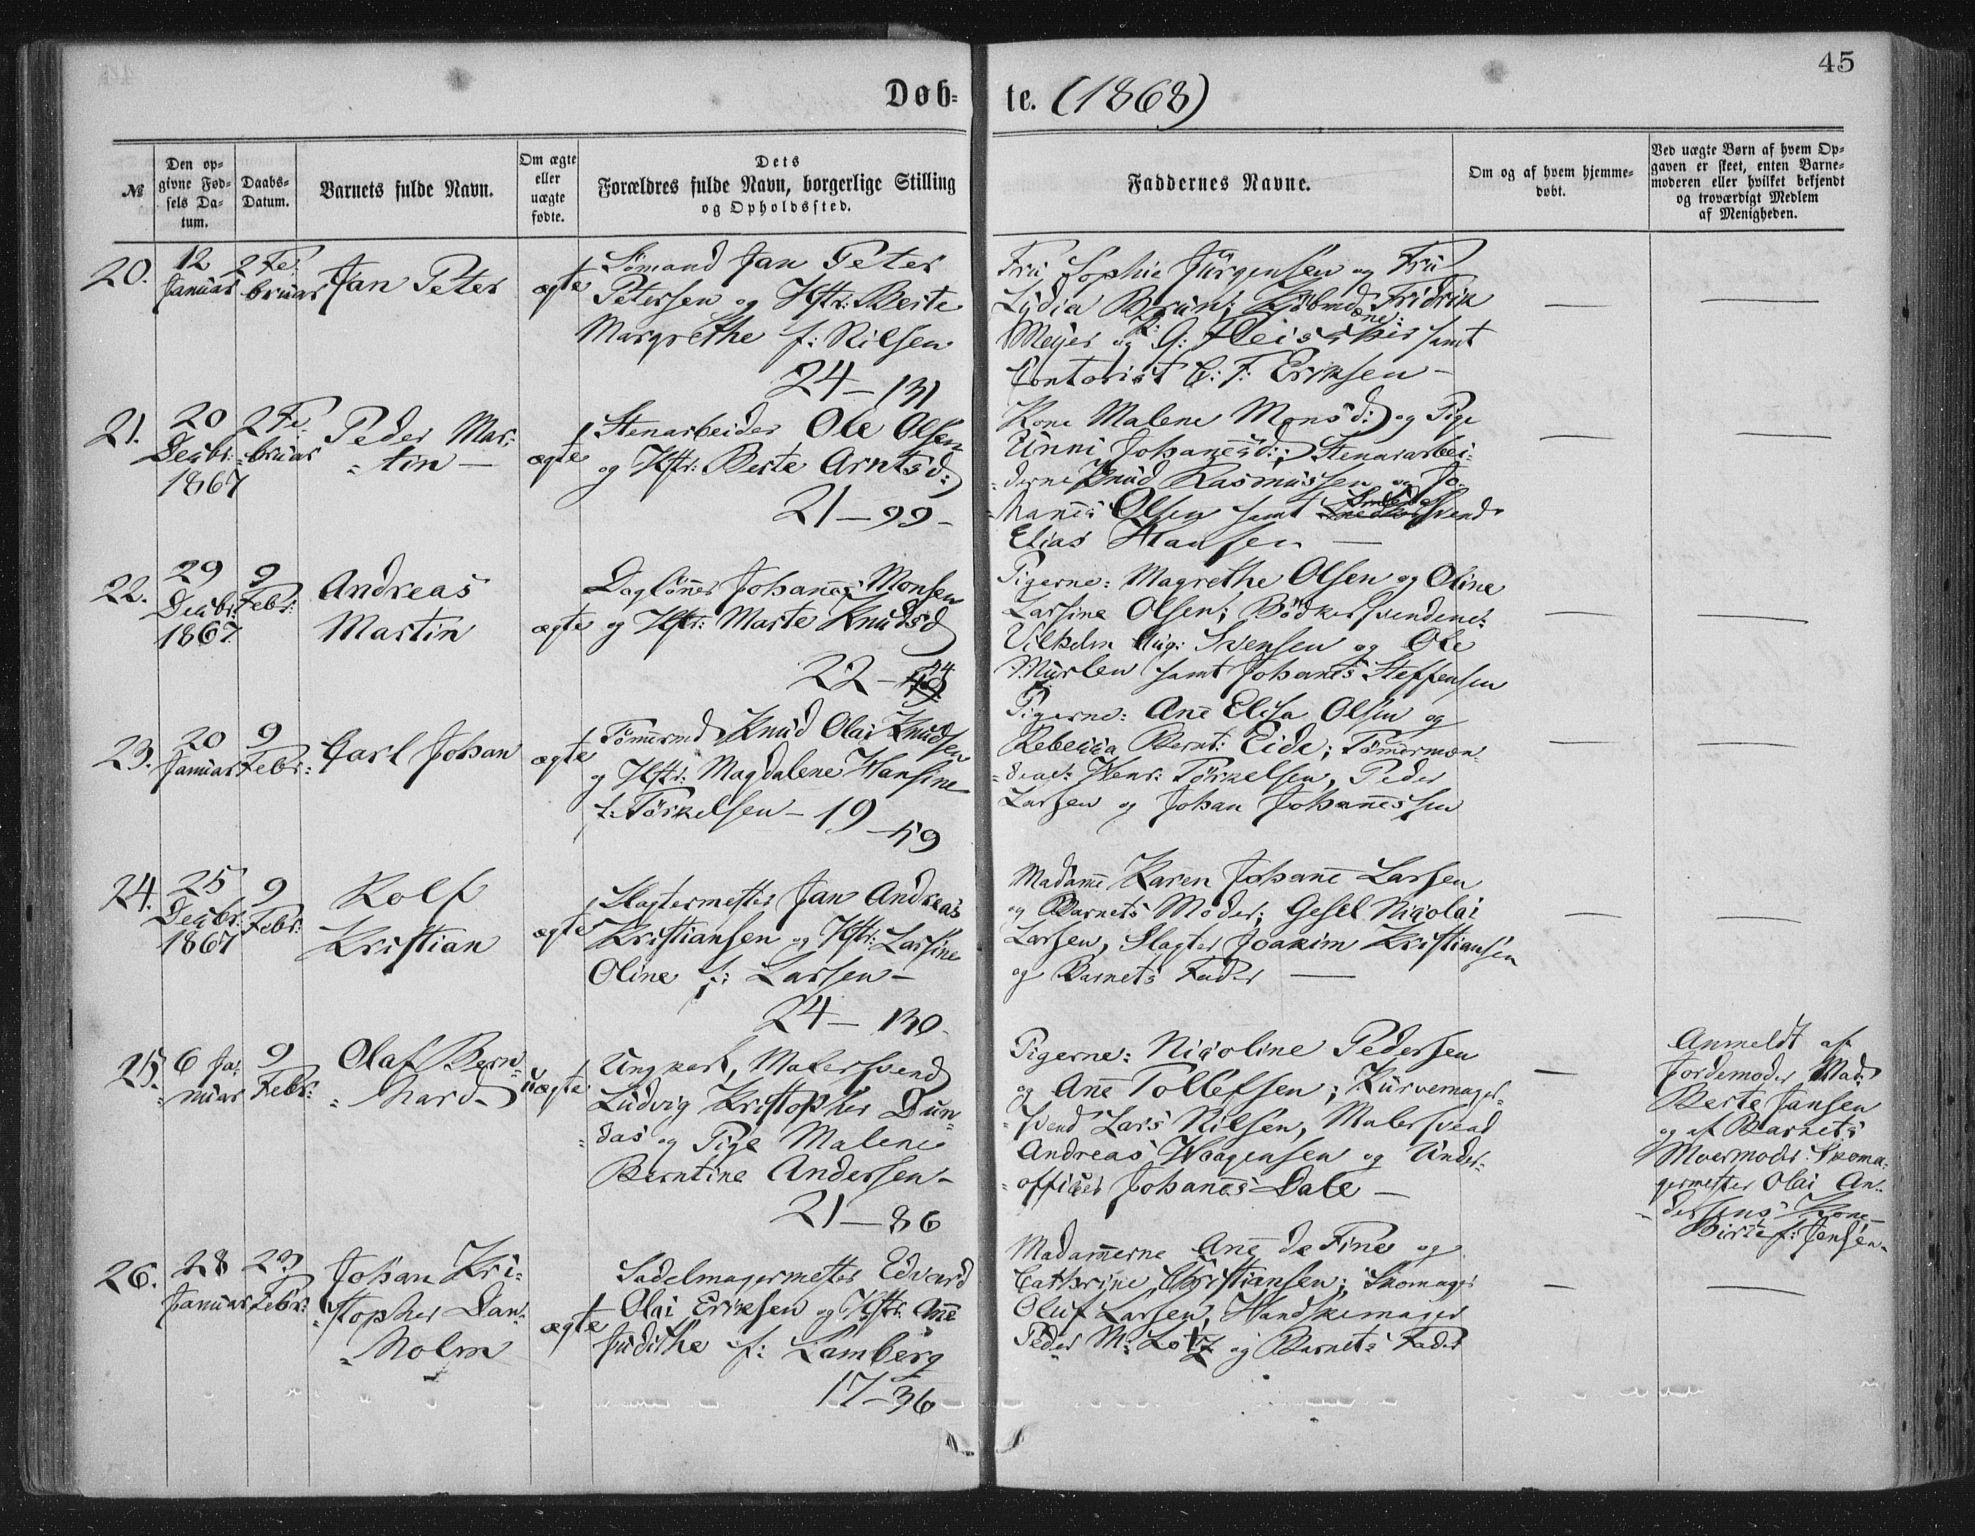 45
Døb- te. (1868)
№
Den op-
givne Fød-
sels Da-
tum.
Daabs-
Datum.
Barnets fulde Navn.
Om ægte
eller
uægte
fødte.
Dets
Forældres fulde Navn, borgerlige Stilling
og Opholdssted.
Faddernes Navne.
Om og af hvem hjemme-
døbt.
Ved uægte Børn af hvem Op-
gaven er skeet, enten Barne-
moderen eller hvilket bekjendt
og troværdigt Medlem
af Menigheden.
20.
12
Januar
2 Fe-
bruar
Jan Peter
ægte
Sømand Jan Peter
Petersen og Hstr: Berte
Margrethe f: Nilsen
24 — 131
Fru Sophie Jürgensen og Fru
Lydia Brun; Kjøbmdæne: Fridrik
Meyer og P: G: Fleischer samt
Contorist C: F: Eriksen —
21.
20
Decbr:
1867
2 Fe-
bruar
Peder Mar-
tin —
ægte
Stenarbeider Ole Olsen
og Hstr: Berte Arntsd:
21 — 99 —
Kone Malene Monsd: og Pige
Unni Johanesd:; Stenararbei-
derne Knud Rasmussen og Jo-
hanes Olsen samt Smedesvend
Elias Hansen —
22.
29
Decbr:
1867
9
Febr:
Andreas
Martin
ægte
Dagløner Johannes Monsen
og Hstr: Marte Knudsd
22 — 44
Pigerne: Magrethe Olsen og Oline
Larsine Olsen; Bødkersvendene:
Vilhelm Aug: Svensen og Ole
Mürlen samt Johanes Steffensen
23.
20
Januar
9
Febr:
Carl Johan
ægte
Tømmermd Knud Olai Knudsen
og Hstr: Magdalene Hansine
f: Törkelsen — 19 — 59
Pigerne: Ane Elisa Olsen og
Rebecca Bernt: Eide; Tømermæn-
dene: Henr: Törkelsen, Peder
Larsen og Johan Johanessen
24.
25
Decbr:
1867
9
Febr:
Rolf
Kristian
ægte
Slagtermester Jan Andreas
Kristiansen og Hstr: Larsine
Oline f: Larsen —
24 — 130 —
Madame Karen Johane Larsen
og Barnets Moder; Gesel Nicolai
Larsen, Slagter Joakim Kristiansen
og Barnets Fader —
25.
6 Ja-
nuar
9
Febr:
Olaf Bern-
hard —
uægte
Ungkarl, Malersvend
Ludvig Kristopher Dun-
das og Pige Malene
Berntine Andersen —
21 — 86
Pigerne: Nicoline Pedersen
og Ane Tollefsen; Kurvemager-
svend Lars Nilsen, Malersvend
Andreas Haagensen og Under-
officer Johanes Dale —
Anmeldt af
Jordemoder Mad:
Berte Jansen
og af Barnets
Mormoder: Skoma-
germester Olai An-
dersens Kone
Birte f: Jensen —
26.
28
Januar
23
Febr:
Johan Kri-
stopher Dan-
holm
ægte
Sadelmagermester Edvard
Olai Eriksen og Hstr: Ane
Judithe f: Lamberg
17 — 36
Madamerne Ane de Fine og
Cathrine Christiansen; Skomager
Oluf Larsen, Handskemager
Peder M: Lotz og Barnets Fader